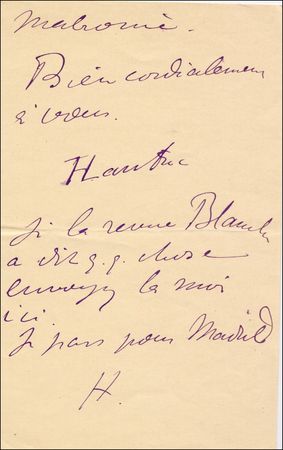 Malromé.
Bien cordialement
à vous.
HLautrec
Si la revue Blanche
a dit q.q. chose
envoyez la moi
ici.
Je pars pour Madrid
H.